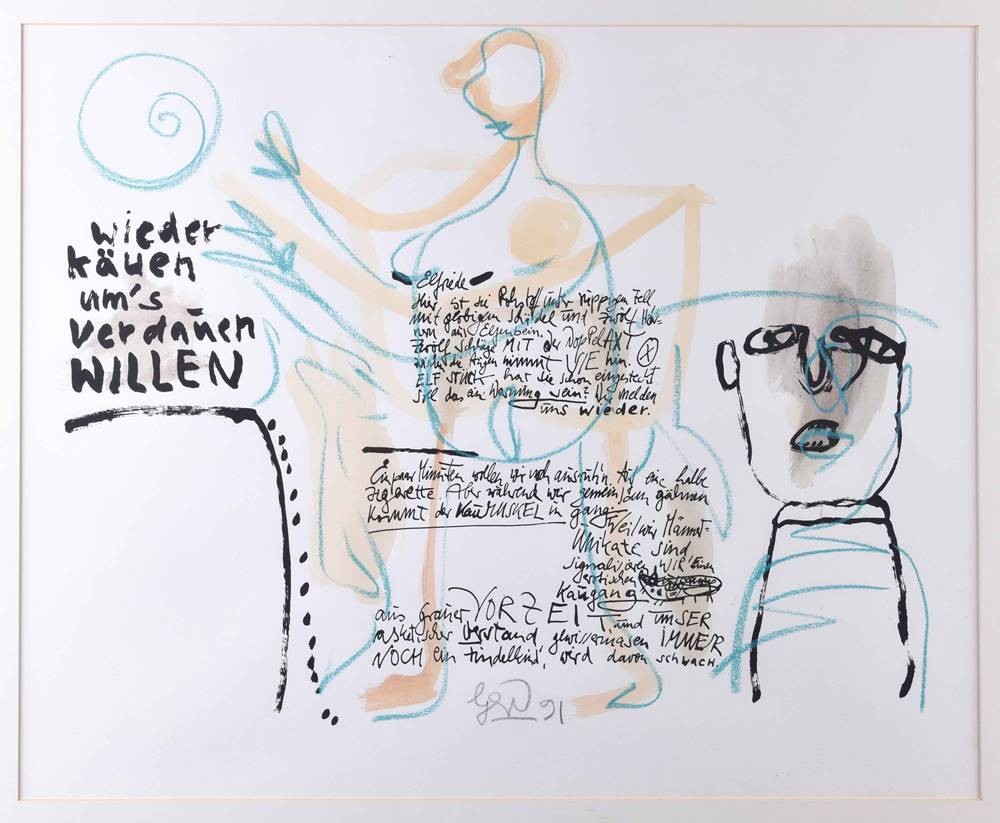 wieder
käuen
um's
verdauen
WILLEN
Elfriede
hier ist die unter rüppigem Fell
mit gelbigem Schädel und zwölf
aus Elfenbein.
zwölf Schläge MIT der DoppelAXT
nimmt SIE hin.
ELF STÜCK hat sie schon eingesteckt
soll das eine Warnung sein? Wir melden
uns wieder.
Ein paar Minuten wollen wir noch ausruhn. Auf eine halbe
Zigarette. Aber während wir gemeinsam gähnen
kommt der KauMUSKEL in Gang.
Weil wir
Unikate sind
signalisieren WIR einen
Kaugang
aus grauer VORZEIT und UNSER
asketischer Verstand, gewissermassen IMMER
NOCH ein Findelkind, wird davon schwach.
91